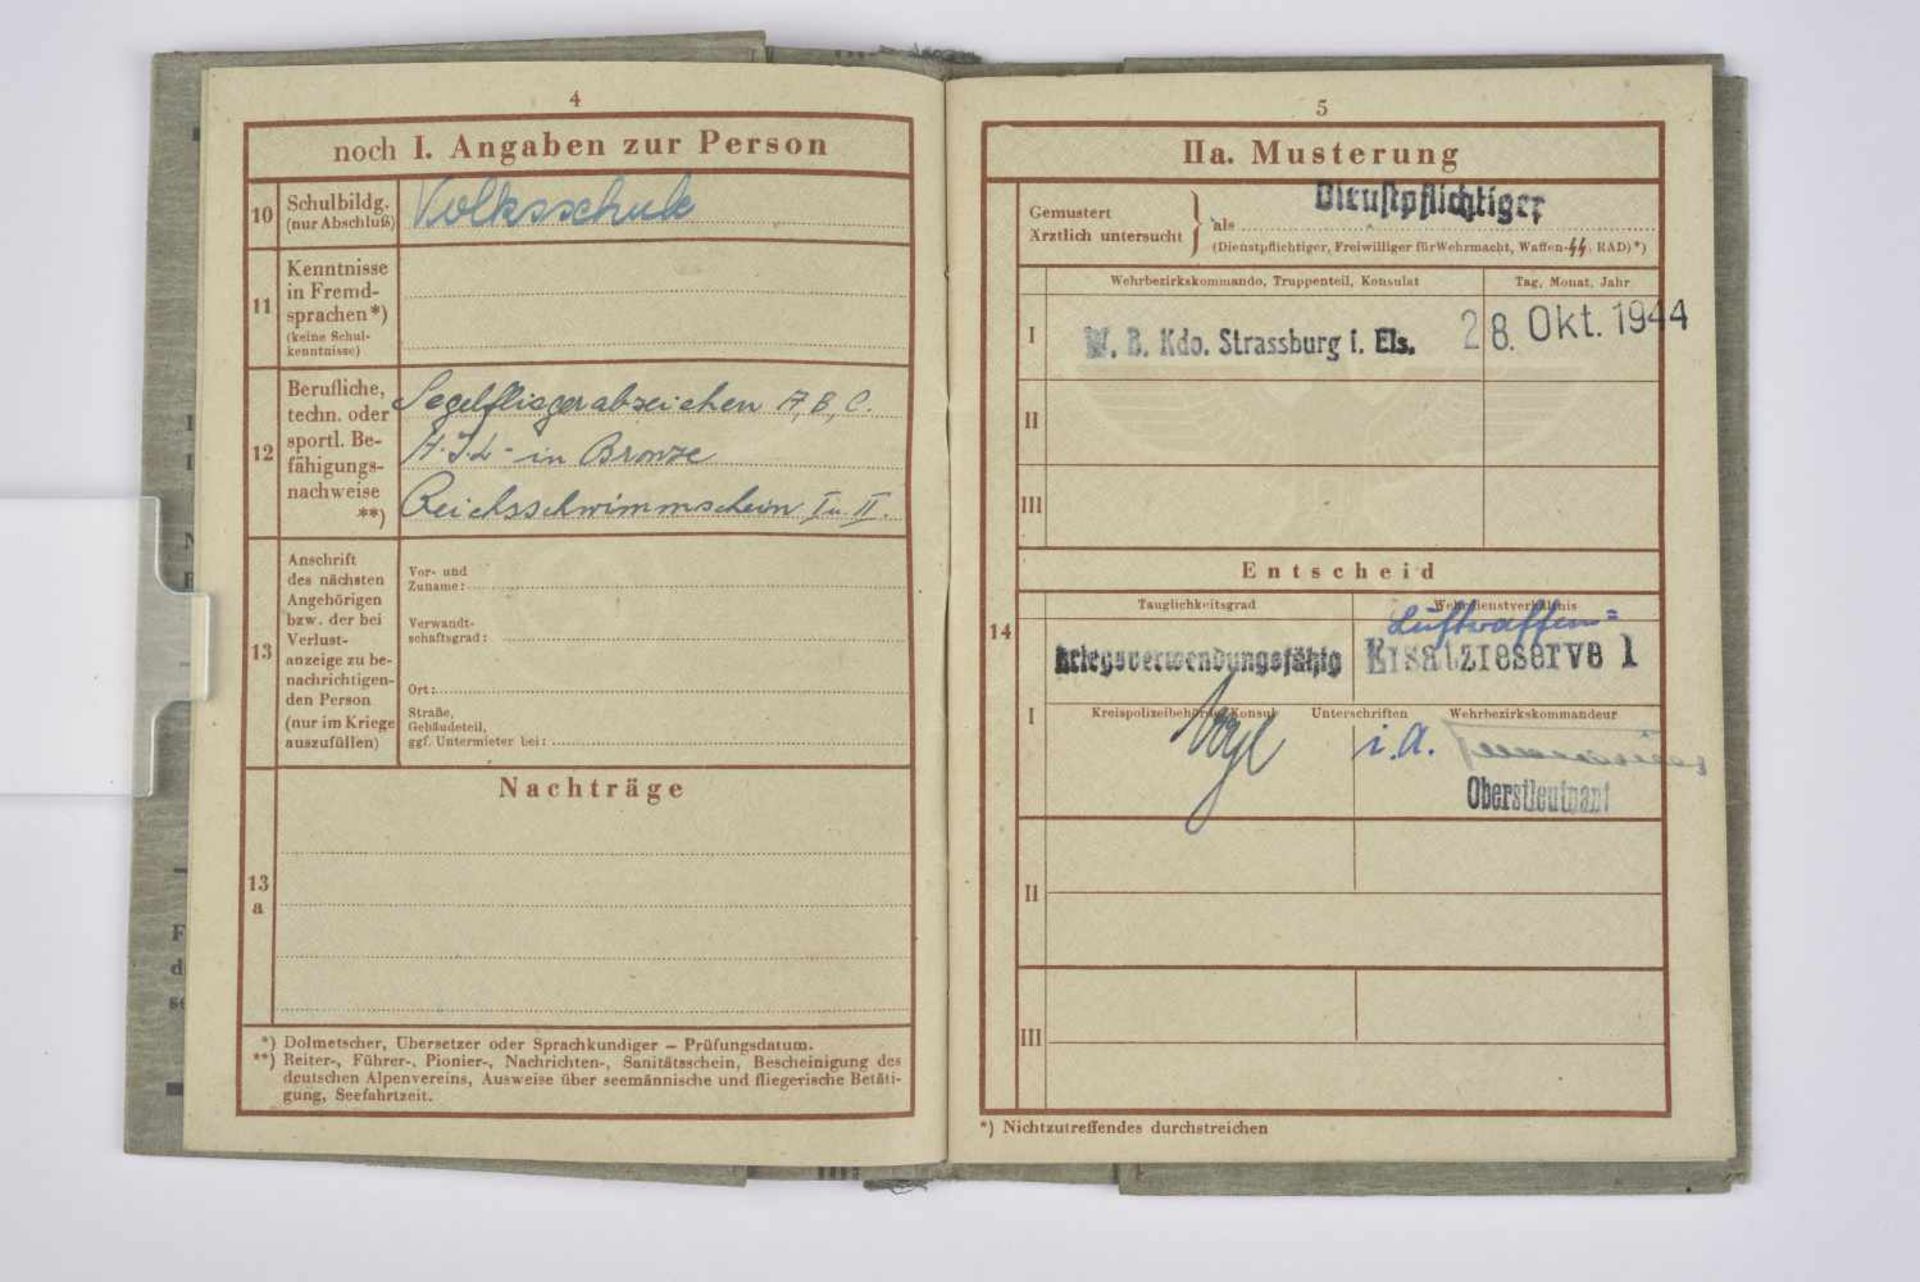 4
noch I. Angaben zur Person
10
Schulbildg.
(nur Abschluß)
Volksschule
11
Kenntnisse
in Fremd-
sprachen*)
(keine Schul-
kenntnisse)
12
Berufliche,
techn. oder
sportl. Be-
fähigungs-
nachweise
**)
Segelfliegerabzeichen A, B, C.
H.J.L- in Bronze
Reichsschwimmschein I u. II.
13
Anschrift
des nächsten
Angehörigen
bzw. der bei
Verlust-
anzeige zu be-
nachrichtigen-
den Person
(nur im Kriege
auszufüllen)
Vor- und
Zuname:
Verwandt-
schaftsgrad:
Ort:
Straße,
Gebäudeteil,
ggf. Untermieter bei:
Nachträge
13
a
*) Dolmetscher, Übersetzer oder Sprachkundiger – Prüfungsdatum.
**) Reiter-, Führer-, Pionier-, Nachrichten-, Sanitätsschein, Bescheinigung des
deutschen Alpenvereins, Ausweise über seemännische und fliegerische Betäti-
gung, Seefahrtzeit.
5
IIa. Musterung
Gemustert
Ärztlich untersucht
als
Dienstpflichtiger
(Dienstpflichtiger, Freiwilliger für Wehrmacht, Waffen-SS, RAD)*)
Wehrbezirkskommando, Truppenteil, Konsulat
Tag, Monat, Jahr
I
W. B. Kdo. Strassburg i. Els.
28. Okt. 1944
II
III
Entscheid
14
Tauglichkeitsgrad
Wehrdienstverhältnis
Luftwaffen=
kriegsverwendungsfähig
Ersatzreserve 1
I
Kreispolizeibehörde Konsul
Unterschriften
Wehrbezirkskommandeur
i.A.
Oberstleutnant
II
III
*) Nichtzutreffendes durchstreichen